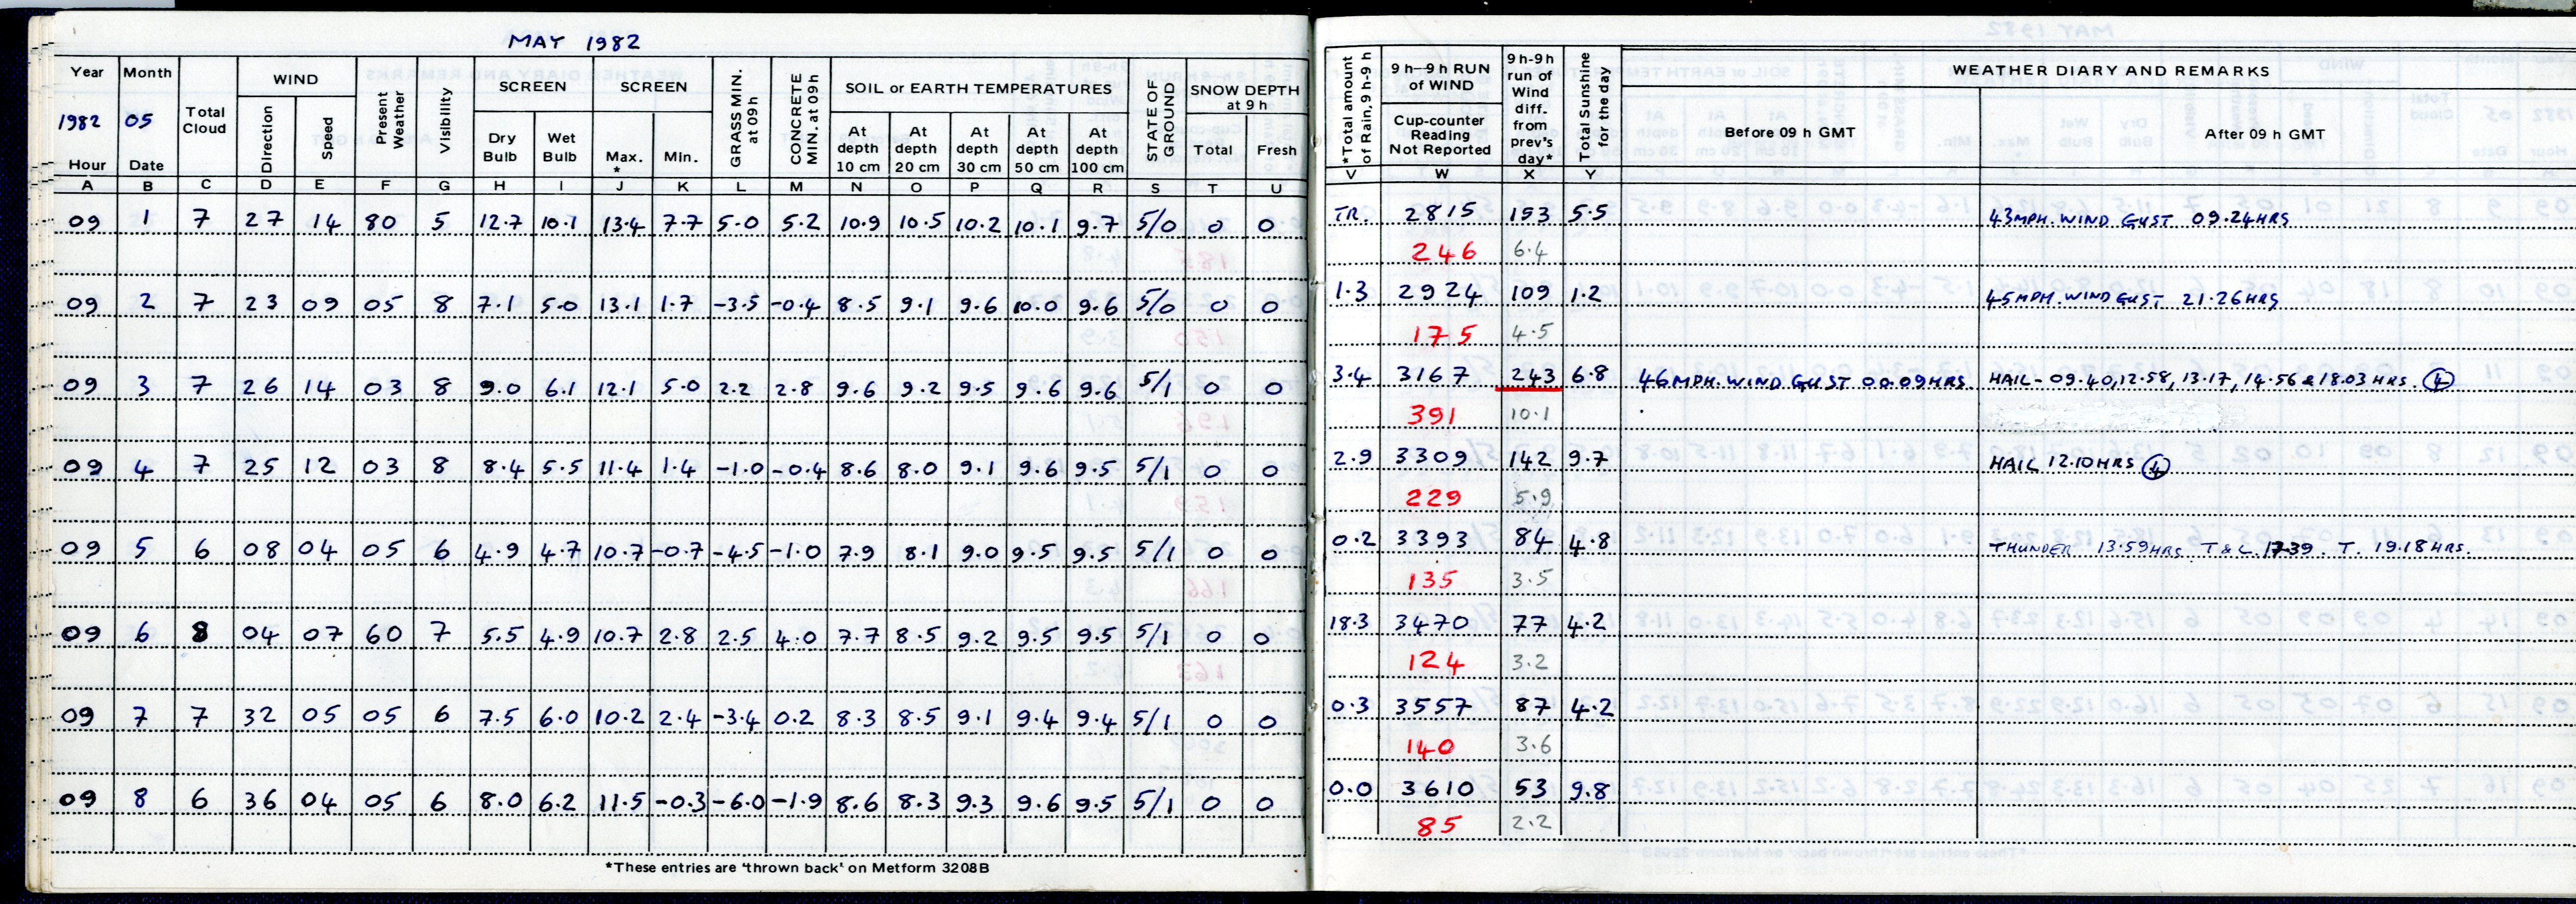 MAY 1982
Year Month Total Cloud WIND Present Weather Visibility SCREEN SCREEN GRASS MIN. at 09 h CONCRETE MIN. at 09 h SOIL or EARTH TEMPERATURES STATE OF GROUND SNOW DEPTH at 9 h
1982 05 Direction Speed Dry Bulb Wet Bulb Max. * Min. At depth 10 cm At depth 20 cm At depth 30 cm At depth 50 cm At depth 100 cm Total Fresh
Hour Date
A B C D E F G H I J K L M N O P Q R S T U
09 1 7 27 14 80 5 12.7 10.1 13.4 7.7 5.0 5.2 10.9 10.5 10.2 10.1 9.7 5/0 0 0
09 2 7 23 09 05 8 7.1 5.0 13.1 1.7 -3.5 -0.4 8.5 9.1 9.6 10.0 9.6 5/0 0 0
09 3 7 26 14 03 8 9.0 6.1 12.1 5.0 2.2 2.8 9.6 9.2 9.5 9.6 9.6 5/1 0 0
09 4 7 25 12 03 8 8.4 5.5 11.4 1.4 -1.0 -0.4 8.6 8.0 9.1 9.6 9.5 5/1 0 0
09 5 6 08 04 05 6 4.9 4.7 10.7 -0.7 -4.5 -1.0 7.9 8.1 9.0 9.5 9.5 5/1 0 0
09 6 8 04 07 60 7 5.5 4.9 10.7 2.8 2.5 4.0 7.7 8.5 9.2 9.5 9.5 5/1 0 0
09 7 7 32 05 05 6 7.5 6.0 10.2 2.4 -3.4 0.2 8.3 8.5 9.1 9.4 9.4 5/1 0 0
09 8 6 36 04 05 6 8.0 6.2 11.5 -0.3 -6.0 -1.9 8.6 8.3 9.3 9.6 9.5 5/1 0 0
*These entries are 'thrown back' on Metform 3208B
*Total amount of Rain, 9 h-9 h 9 h—9 h RUN of WIND 9 h-9h run of Wind diff. from prev's day* Total Sunshine for the day WEATHER DIARY AND REMARKS
Cup-counter Reading Not Reported Before 09 h GMT After 09 h GMT
V W X Y
TR. 2815 153 5.5 43MPH. WIND GUST 09.24HRS
246 6.4
1.3 2924 109 1.2 45MPH. WIND GUST 21.26HRS
175 4.5
3.4 3167 243 6.8 46MPH. WIND GUST 00.09HRS HAIL - 09.40, 12.58, 13.17, 14.56 & 18.03 HRS.
391 10.1
2.9 3309 142 9.7 HAIL 12.10HRS
229 5.9
0.2 3393 84 4.8 THUNDER 13.59HRS. T & L. 17.39. T. 19.18HRS.
135 3.5
18.3 3470 77 4.2
124 3.2
0.3 3557 87 4.2
140 3.6
0.0 3610 53 9.8
85 2.2